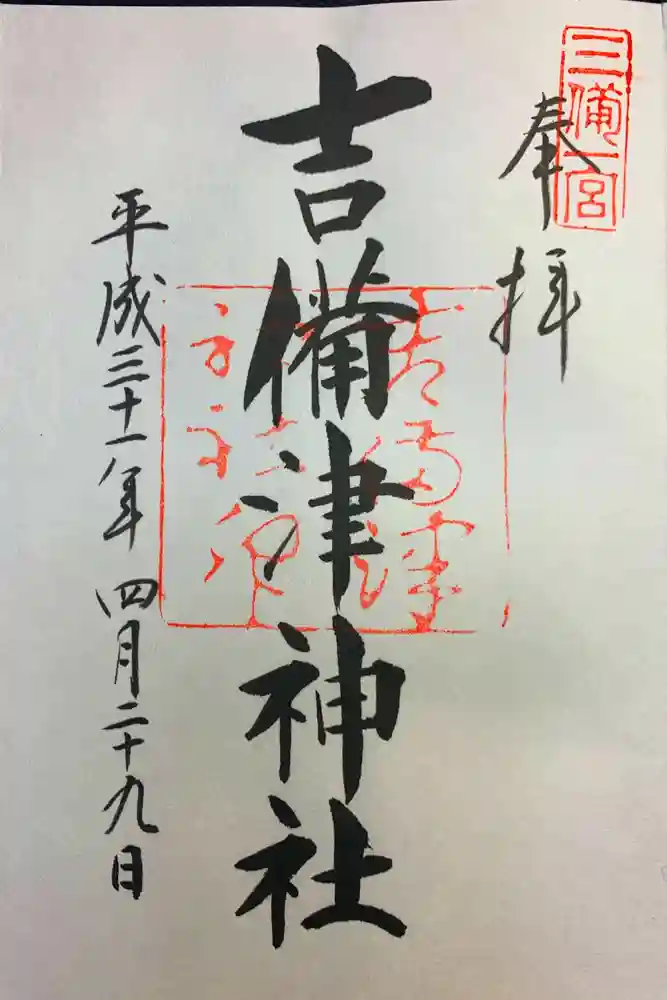 三備一宮
奉拝
吉備津神社
平成三十一年四月二十九日